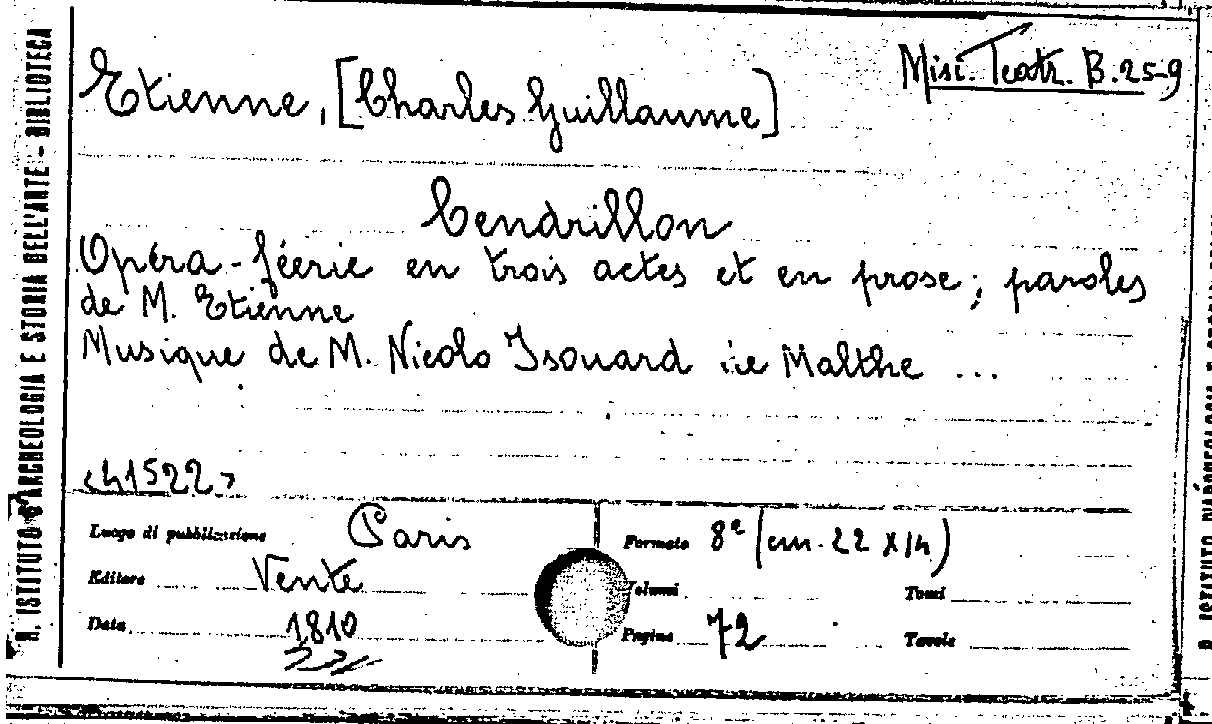 Misi. Teatr. B. 25-9
Etienne, [Charles Guillaume]
Cendrillon
Opéra-féerie en trois actes et en prose; paroles
de M. Etienne
Musique de M. Nicolo Isouard de Malthe ...
<41522>
Luogo di pubblicazione Paris
Editore Vente
Data 1810
Formato 8° (cm. 22 x 14)
Volumi Tomi
Pagine 72 Tavole
R. ISTITUTO D'ARCHEOLOGIA E STORIA DELL'ARTE - BIBLIOTECA